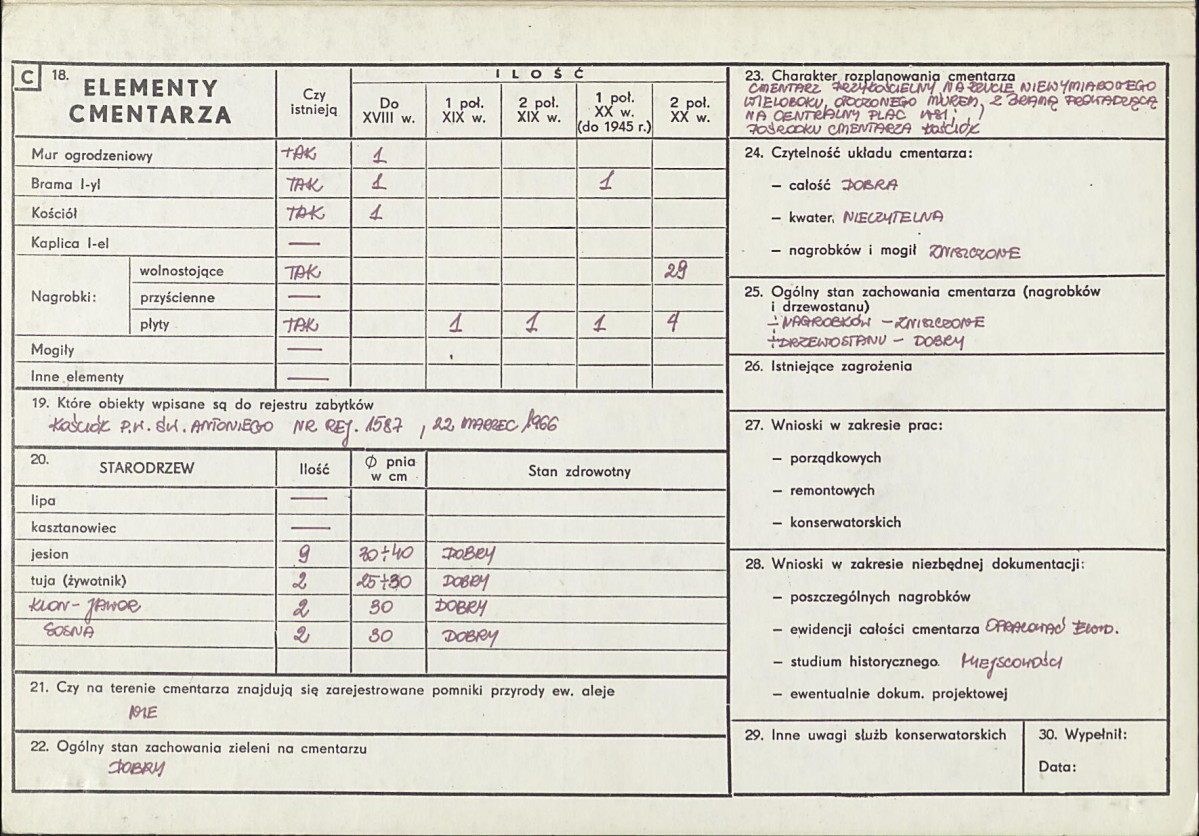 C 18. ELEMENTY CMENTARZA
Czy istnieją
ILOŚĆ
Do XVIII w.
1 poł. XIX w.
2 poł. XIX w.
1 poł. XX w. (do 1945 r.)
2 poł. XX w.
Mur ogrodzeniowy TAK 1
Brama l-yl TAK 1 1
Kościół TAK 1
Kaplica l-el —
Nagrobki:
wolnostojące TAK 29
przyścienne —
płyty TAK 1 1 1 4
Mogiły —
Inne elementy —
19. Które obiekty wpisane są do rejestru zabytków
KOŚCIÓŁ P.W. ŚW. ANTONIEGO NR REJ. 1587, 22 MARZEC 1966
20. STARODRZEW Ilość Ø pnia w cm Stan zdrowotny
lipa —
kasztanowiec —
jesion 9 30÷40 DOBRY
tuja (żywotnik) 2 25÷30 DOBRY
KLON - JAWOR 2 30 DOBRY
SOSNA 2 30 DOBRY
21. Czy na terenie cmentarza znajdują się zarejestrowane pomniki przyrody ew. aleje
NIE
22. Ogólny stan zachowania zieleni na cmentarzu
DOBRY
23. Charakter rozplanowania cmentarza
CMENTARZ PRZYKOŚCIELNY NA RZUCIE NIEWYMIAROWEGO
WIELOBOKU, OTOCZONEGO MUREM, Z BRAMĄ PROWADZĄCĄ
NA CENTRALNY PLAC WSI,
POŚRODKU CMENTARZA KOŚCIÓŁ
24. Czytelność układu cmentarza:
– całość DOBRA
– kwater, NIECZYTELNA
– nagrobków i mogił ZNISZCZONE
25. Ogólny stan zachowania cmentarza (nagrobków
i drzewostanu)
- NAGROBKÓW - ZNISZCZONE
- DRZEWOSTANU - DOBRY
26. Istniejące zagrożenia
27. Wnioski w zakresie prac:
– porządkowych
– remontowych
– konserwatorskich
28. Wnioski w zakresie niezbędnej dokumentacji:
– poszczególnych nagrobków
– ewidencji całości cmentarza OPRACOWAĆ
– studium historycznego. MIEJSCOWOŚCI
– ewentualnie dokum. projektowej
29. Inne uwagi służb konserwatorskich
30. Wypełnił:
Data: